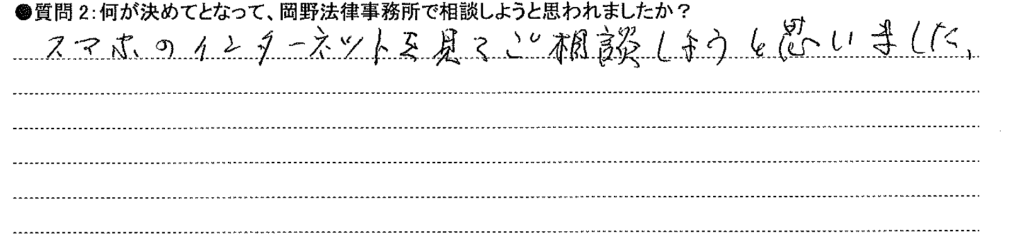 ●質問2:何が決めてとなって、岡野法律事務所で相談しようと思われましたか?
スマホのインターネットを見てご相談しようと思いました、